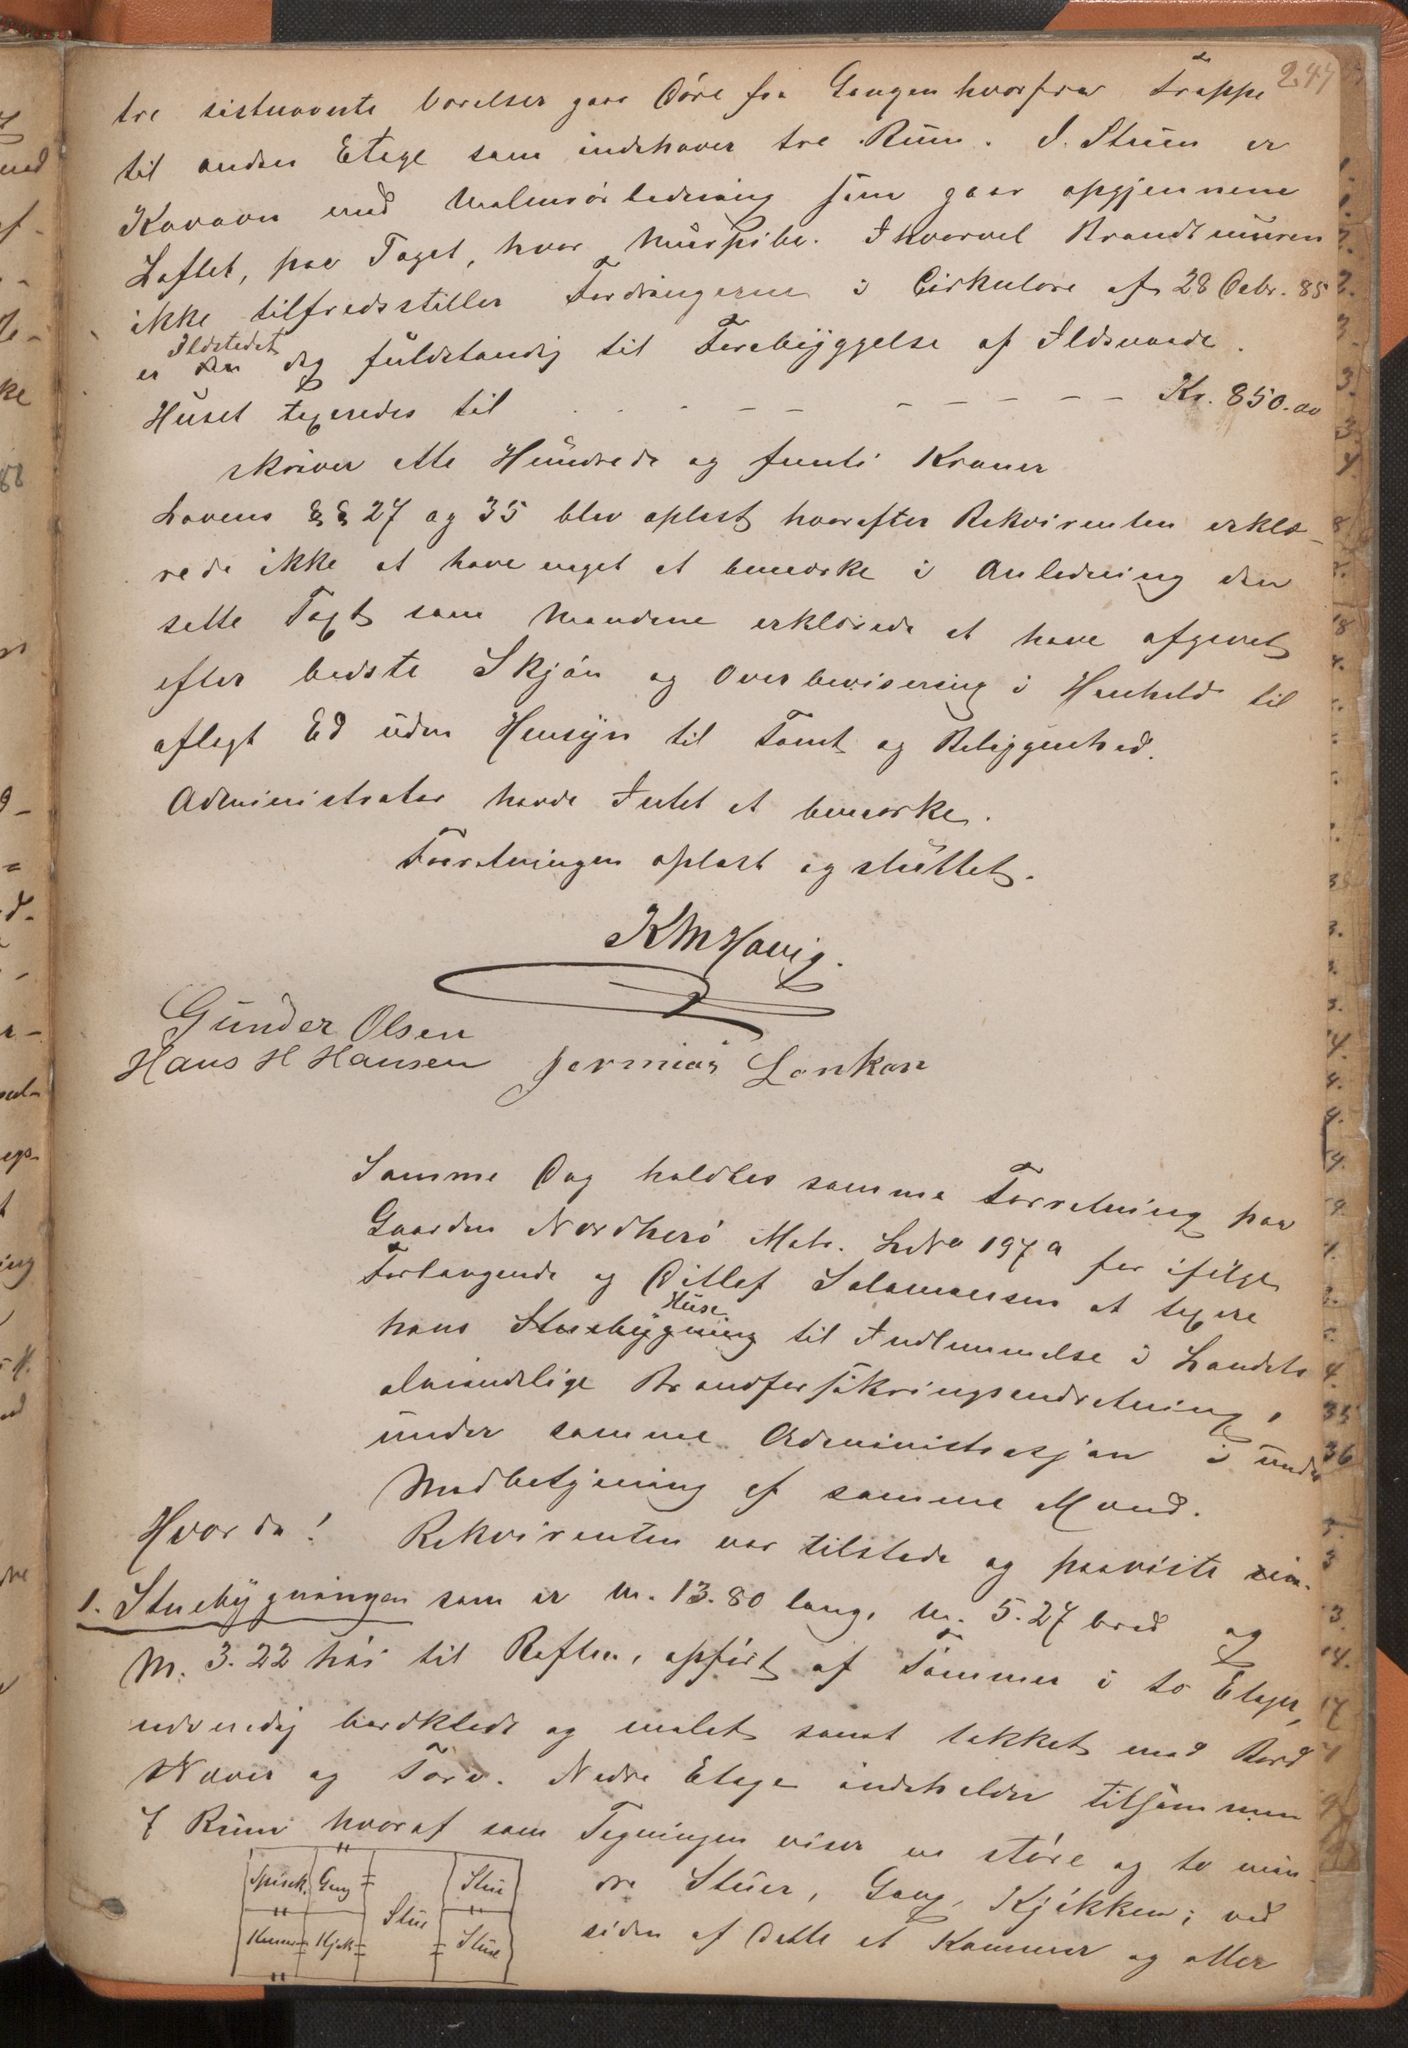 247
tre sistnævnte Værelser gaar Døre fra Gangen hvorfra Trappe
til anden Etage som indehaver tre Rum. I Stuen er
Kakovn med Malmrørledning som gaar opgjennem
Loftet, paa Taget, hvor Murpibe. Ihvorvel Brandtmuren
ikke tilfredsstiller Fordringerne i Cirkulære af 28 Debr. 85
Ildstedet
er den dog fuldstændig til Forebyggelse af Ildsvaade.
Huset taxeredes til . . . - - - - - - - - Kr. 850.00
skriver otte Hundrede og femti Kroner
Lovens §§ 27 og 35 blev oplæst hvorefter Rekvirenten erklæ-
rede ikke at have noget at bemærke i Anledning den
satte Taxt som Mændene erklærede at have afgivet
efter bedste Skjøn og Overbevisning i Henhold til
aflagt Ed uden Hensyn til Tomt og Beliggenhed.
Administrator havde Intet at bemærke.
Forretningen oplæst og sluttet.
K M Havig.
Gunder Olsen
Hans H Hansen Jermias Lonkan
Samme Dag holdtes samme Forretning paa
Gaarden Nordherø Matr. LNo 197a for ifølge
Forlangende og Ditlef Salamonsen at taxere
Huse
hans Stuebygning til Indlemmelse i Landets
almindelige Brandforsikringsindretning,
under samme Administrasjon i under
Medbetjening af samme Mænd.
Hvorda! Rekvirenten var tilstede og paaviste sin
1. Stuebygningen som er M. 13.80 lang, M. 5.27 bred og
M. 3.22 høi til Raften, opført af Tømmer i to Etager,
udvendig bordklædt og malet samt tækket med Bord
Næver og Torv. Nedre Etage indeholder tilsammen
7 Rum hvoraf som Tegningen viser en støre og to min
dre Stuer, Gang, Kjøkken; ved
siden af dette et Kammer og atter
Spisek. Gang Stue Stue
Kammer Kjøk Stue